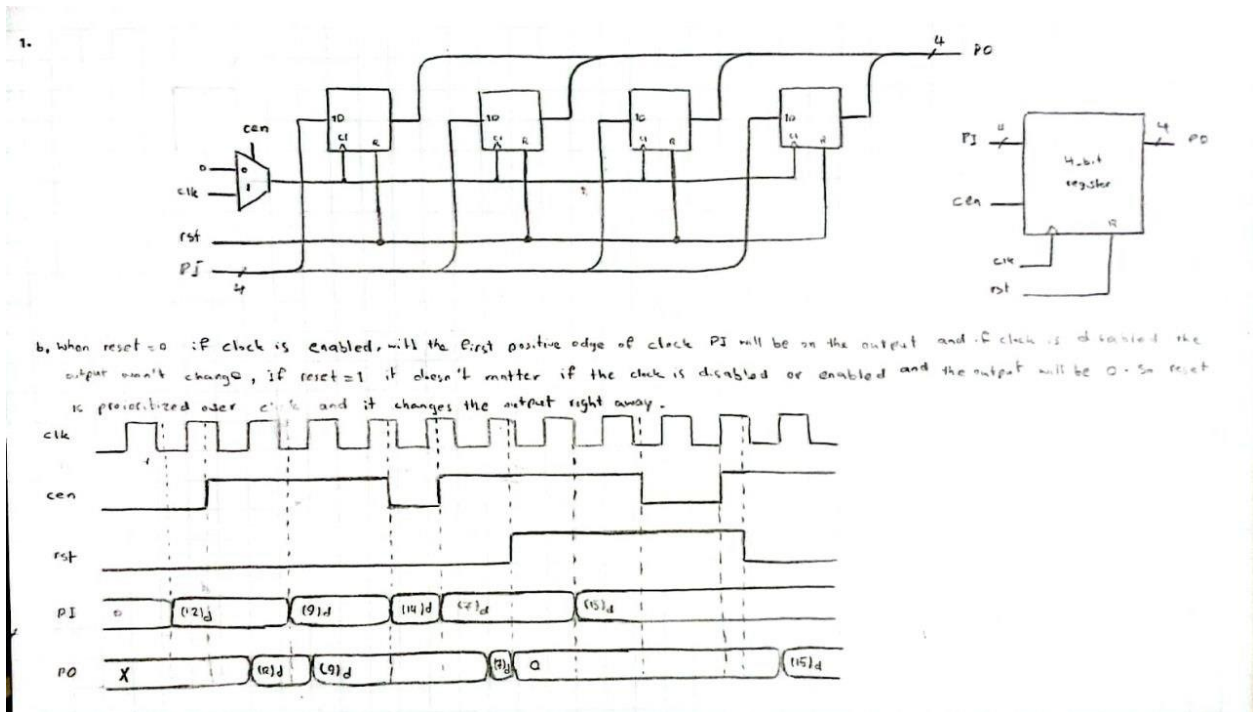 1.
4 PO
1D 1D 1D 1D
cen C1 R C1 R C1 R C1 R
0 0
clk 1
rst
PI
4
PI 4 4 PO
4-bit
register
cen
R
clk
rst
b, when reset = 0 if clock is enabled, with the first positive edge of clock PI will be on the output and if clock is disabled the
output won't change, if reset = 1 it doesn't matter if the clock is disabled or enabled and the output will be 0. So reset
is proioritized over and it changes the output right away.
clk
cen
rst
PI 0 (12)d (9)d (14)d (7)d (15)d
PO X (12)d (9)d (7)d 0 (15)d